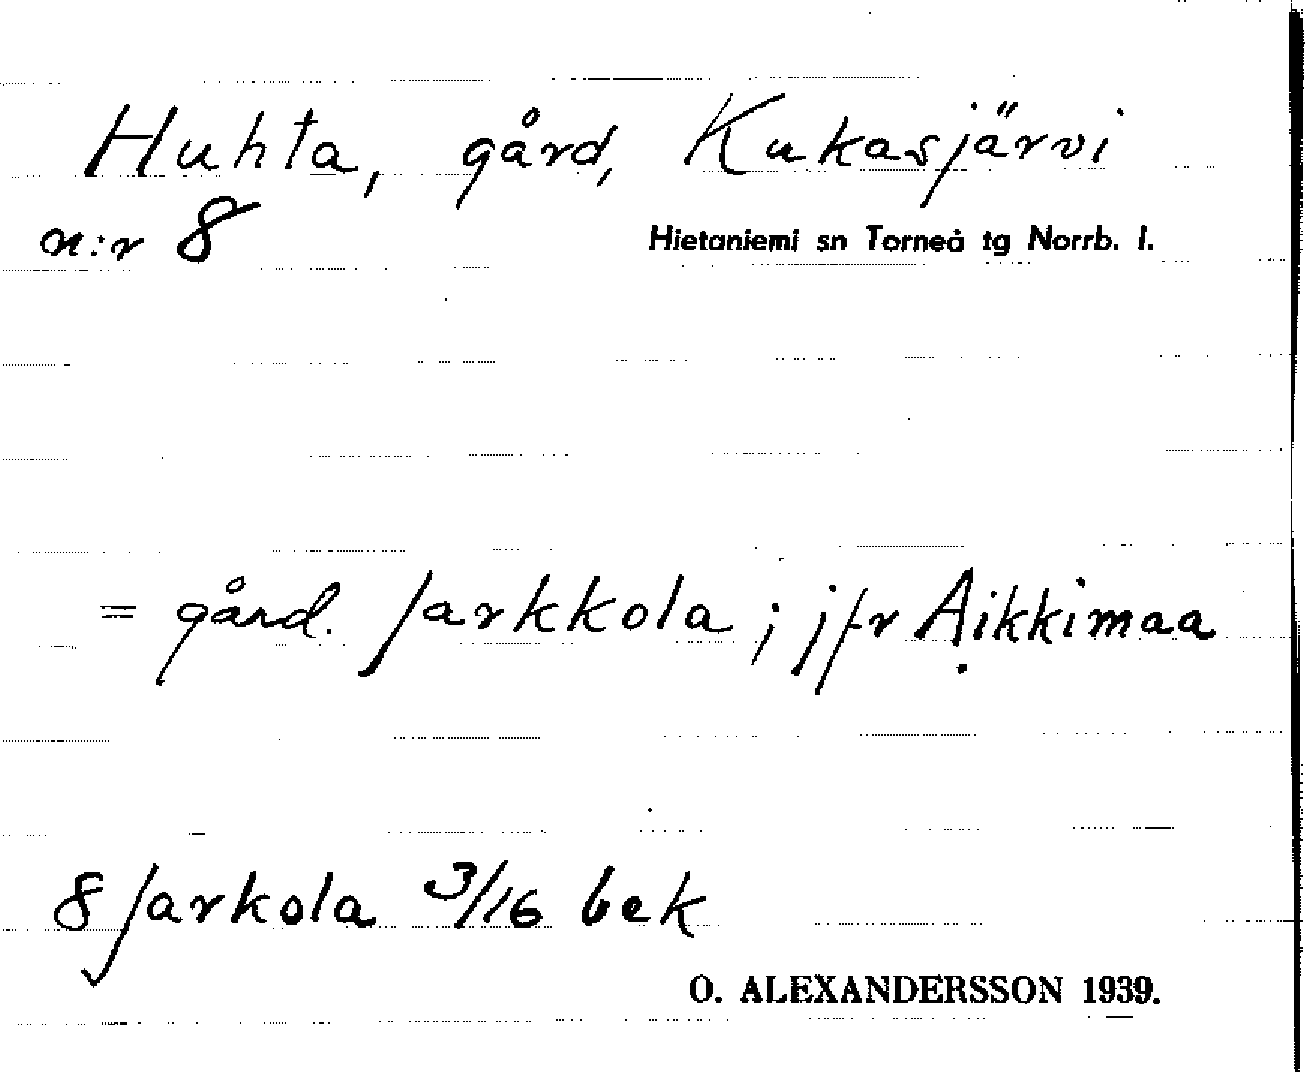 Huhta, gård, Kukasjärvi
n:r 8
Hietaniemi sn Torneå tg Norrb. l.
= gård. Jarkkola; jfr Äikkimaa
8 Jarkola 3/16 bek
O. ALEXANDERSSON 1939.